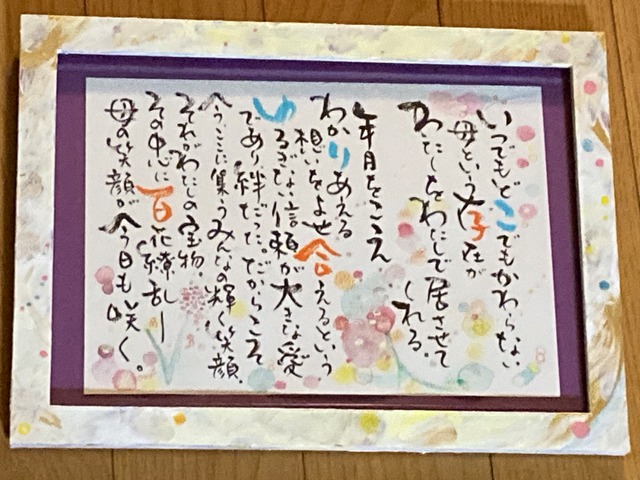 いつでもどこでもかわらない
母という存在が
わたしをわたしで居させて
くれる。
年月をこえ
わかりあえる
想いをよせ合えるという
ゆるぎない信頼が大きな愛
であり絆だった。だからこそ
今、ここに集うみんなの輝く笑顔。
それがわたしの宝物。
その中心に百花繚乱ー
母の笑顔が今日も咲く。